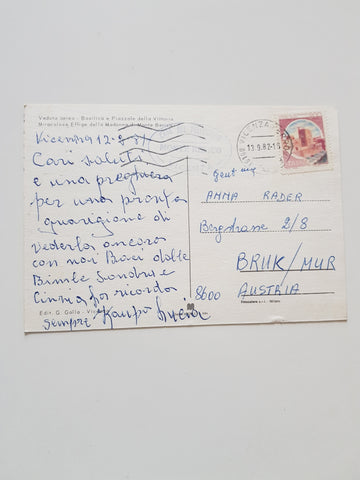 Veduta aerea - Basilica e Piazzale della Vittoria
Miracolosa Effige della Madonna di Monte Berico
Vicenza 12-9-81
Cari saluti
e una preghiera
per una pronta
guarigione di
vederla ancora
con noi Baci dalle
Bimbe Sandra e
Cinzia La ricorda
sempre Lucia
Edit. G. Galla - Vicenza
13.9.82-15
gent mg
ANNA RADER
Bergstrasse 2/8
BRUK/MUR
8600 AUSTRIA